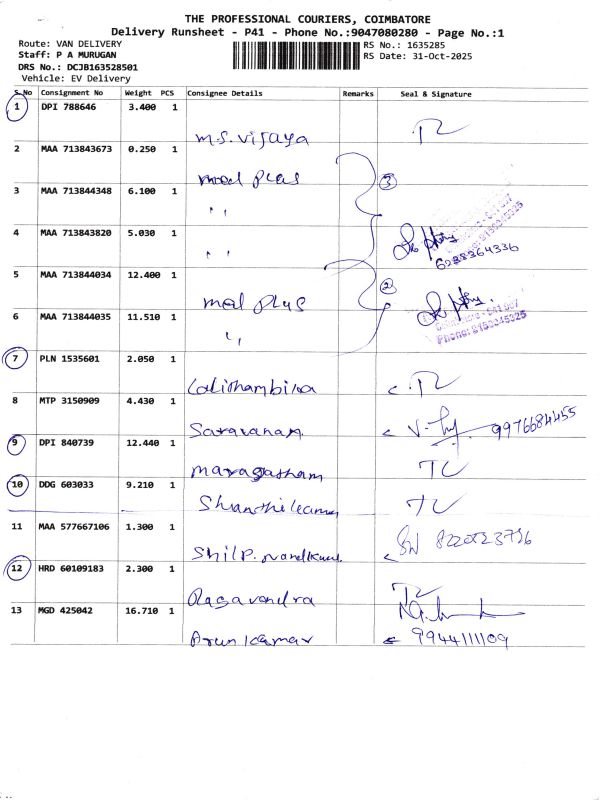 THE PROFESSIONAL COURIERS, COIMBATORE
Delivery Runsheet - P41 - Phone No.:9047080280 - Page No.:1
Route: VAN DELIVERY
Staff: P A MURUGAN
DRS No.: DCJB163528501
Vehicle: EV Delivery
RS No.: 1635285
RS Date: 31-Oct-2025
S.No Consignment No Weight PCS Consignee Details Remarks Seal & Signature
1 DPI 788646 3.400 1
M.S. Vijaya
2 MAA 713843673 0.250 1
med plus
3 MAA 713844348 6.100 1 3
" "
4 MAA 713843820 5.030 1
" " 6238364336
5 MAA 713844034 12.400 1 2
med plus
6 MAA 713844035 11.510 1
" "
Phone: 8150245025
7 PLN 1535601 2.050 1
Lalithambika
8 MTP 3150909 4.430 1
Saravanan 9976684455
9 DPI 840739 12.440 1
maragatham
10 DDG 603033 9.210 1
11 MAA 577667106 1.300 1
Shilp.
12 HRD 60109183 2.300 1
Ragavendra
13 MGD 425042 16.710 1
Arun kumar 9944111109